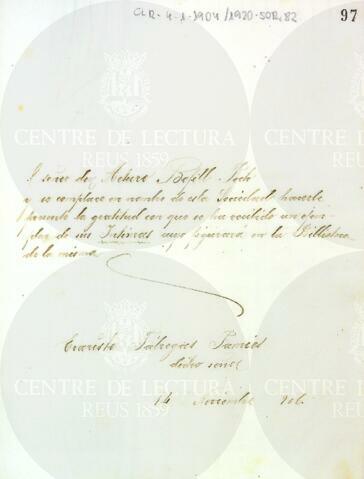 CLR-4-1-1904/1920-SOR,82
97
CENTRE DE LECTURA
REUS 1859
señor don Arturo Bofill
se complace en nombre de esta Sociedad hacerle
la gratitud con que se ha recibido un ejem-
plar de sus que figurará en la
de la misma
Evaristo Fábregas Pamies
dicho señor
14 Noviembre 906.
CENTRE DE LECTURA
REUS 1859
CENTRE DE LECTURA
REUS 1859